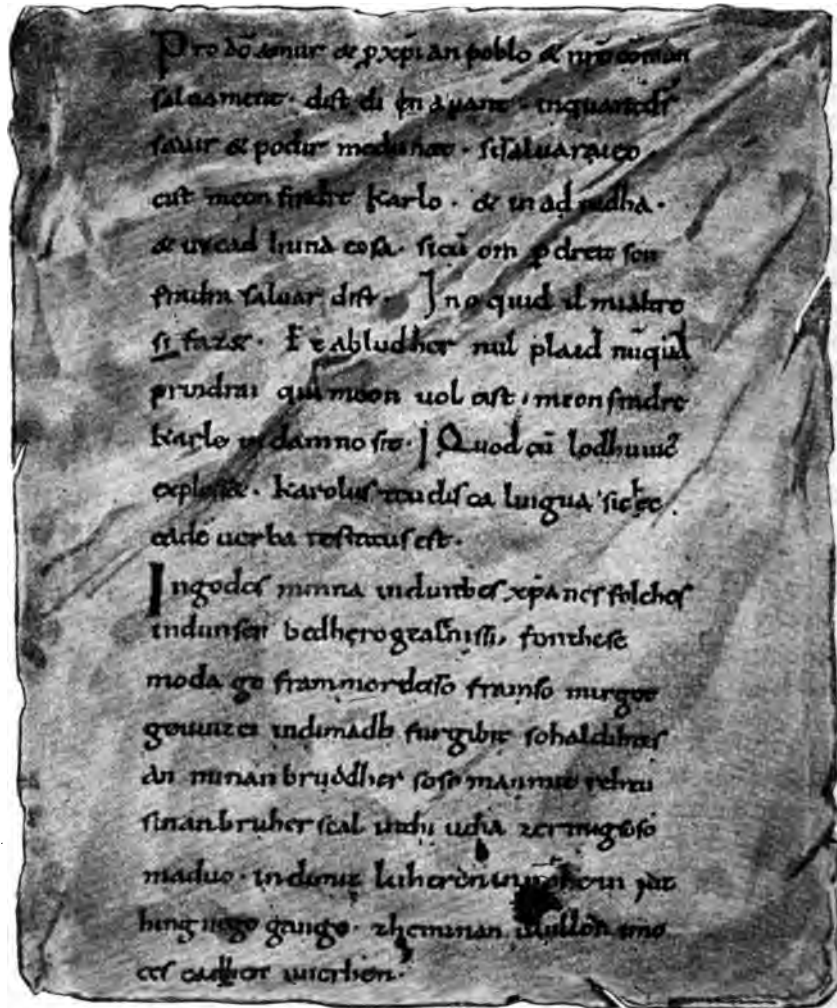 Pro dō amur & p xp̄ian poblo & nr̄o cōmun
saluament. dist di en auant. inquantdS
sauir & podir medunat. sisaluaraieo
cist meon fradre Karlo. & in ad iudha.
& in cad huna cosa. sicū om p dreit son
fradra saluar dist. Ino quid il mialtre
si faz&. Et abludher nul plaid nūquā
prindrai qui meon uol cist, meon fradre
Karle in damno sit. Quod cū lodhuuic
explesset. Karolus teudisca lingua sic ec
eadē uerba testatus est.
Ingodes minna induithes xp̄anes folches
indunser bedhero gealtnissi, fonthese
moda ge frammordesso framso mirgot
geuuizci indimadh furgibit sohaldihtes
an minan bruodher soso manmit rehtu
sinanbruher scal inthi utha zermigsoso
maduo. indimit luheren in noheiniu
thing nege gango. zheminan uuillon imo
ces cadhen uuerhen.